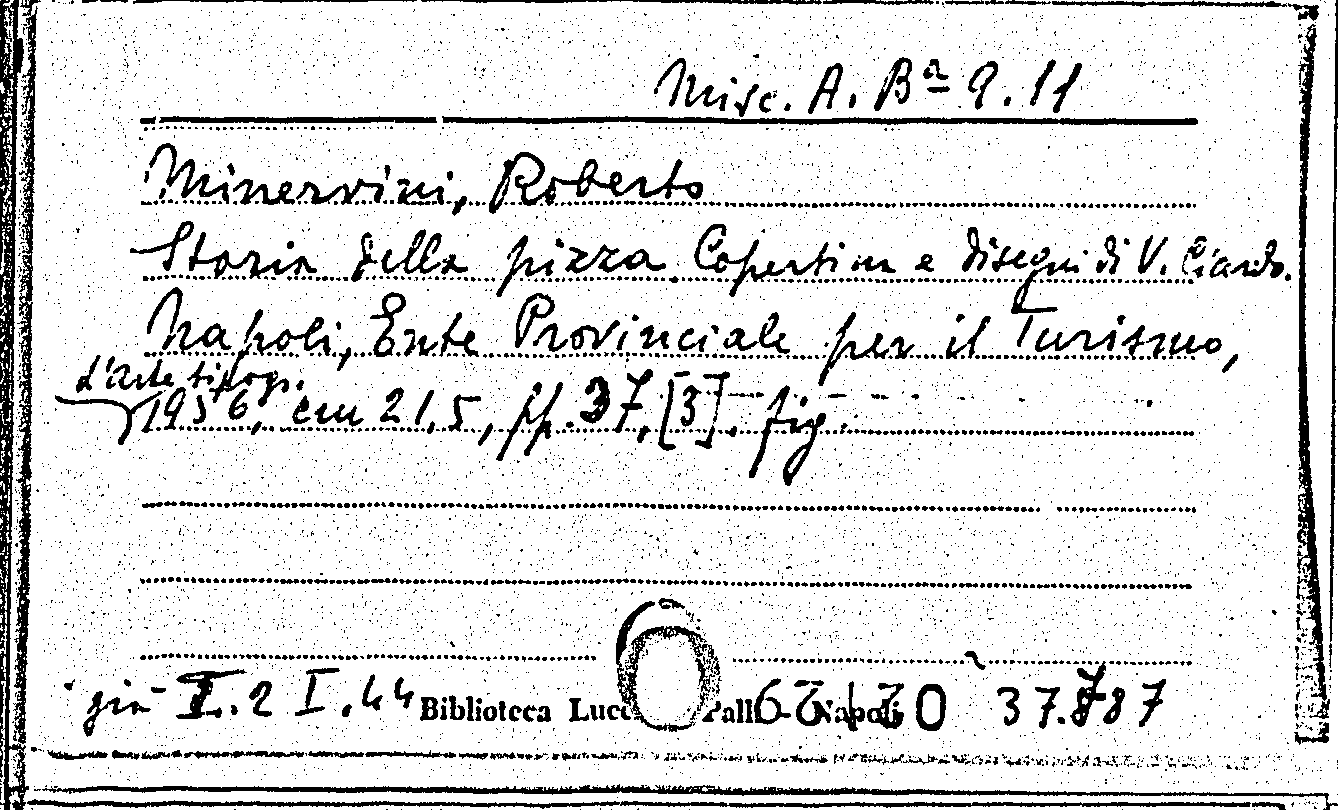 Misc. A. Bª 9.11
Minervini, Roberto
Storia della pizza. Copertina e disegni di V. Ciardo.
Napoli, Ente Provinciale per il Turismo,
d'Arte tipogr.
1956, cm 21,5, pp. 37,[3]. fig.
già I.2 I.44 Biblioteca Napoli 37.787